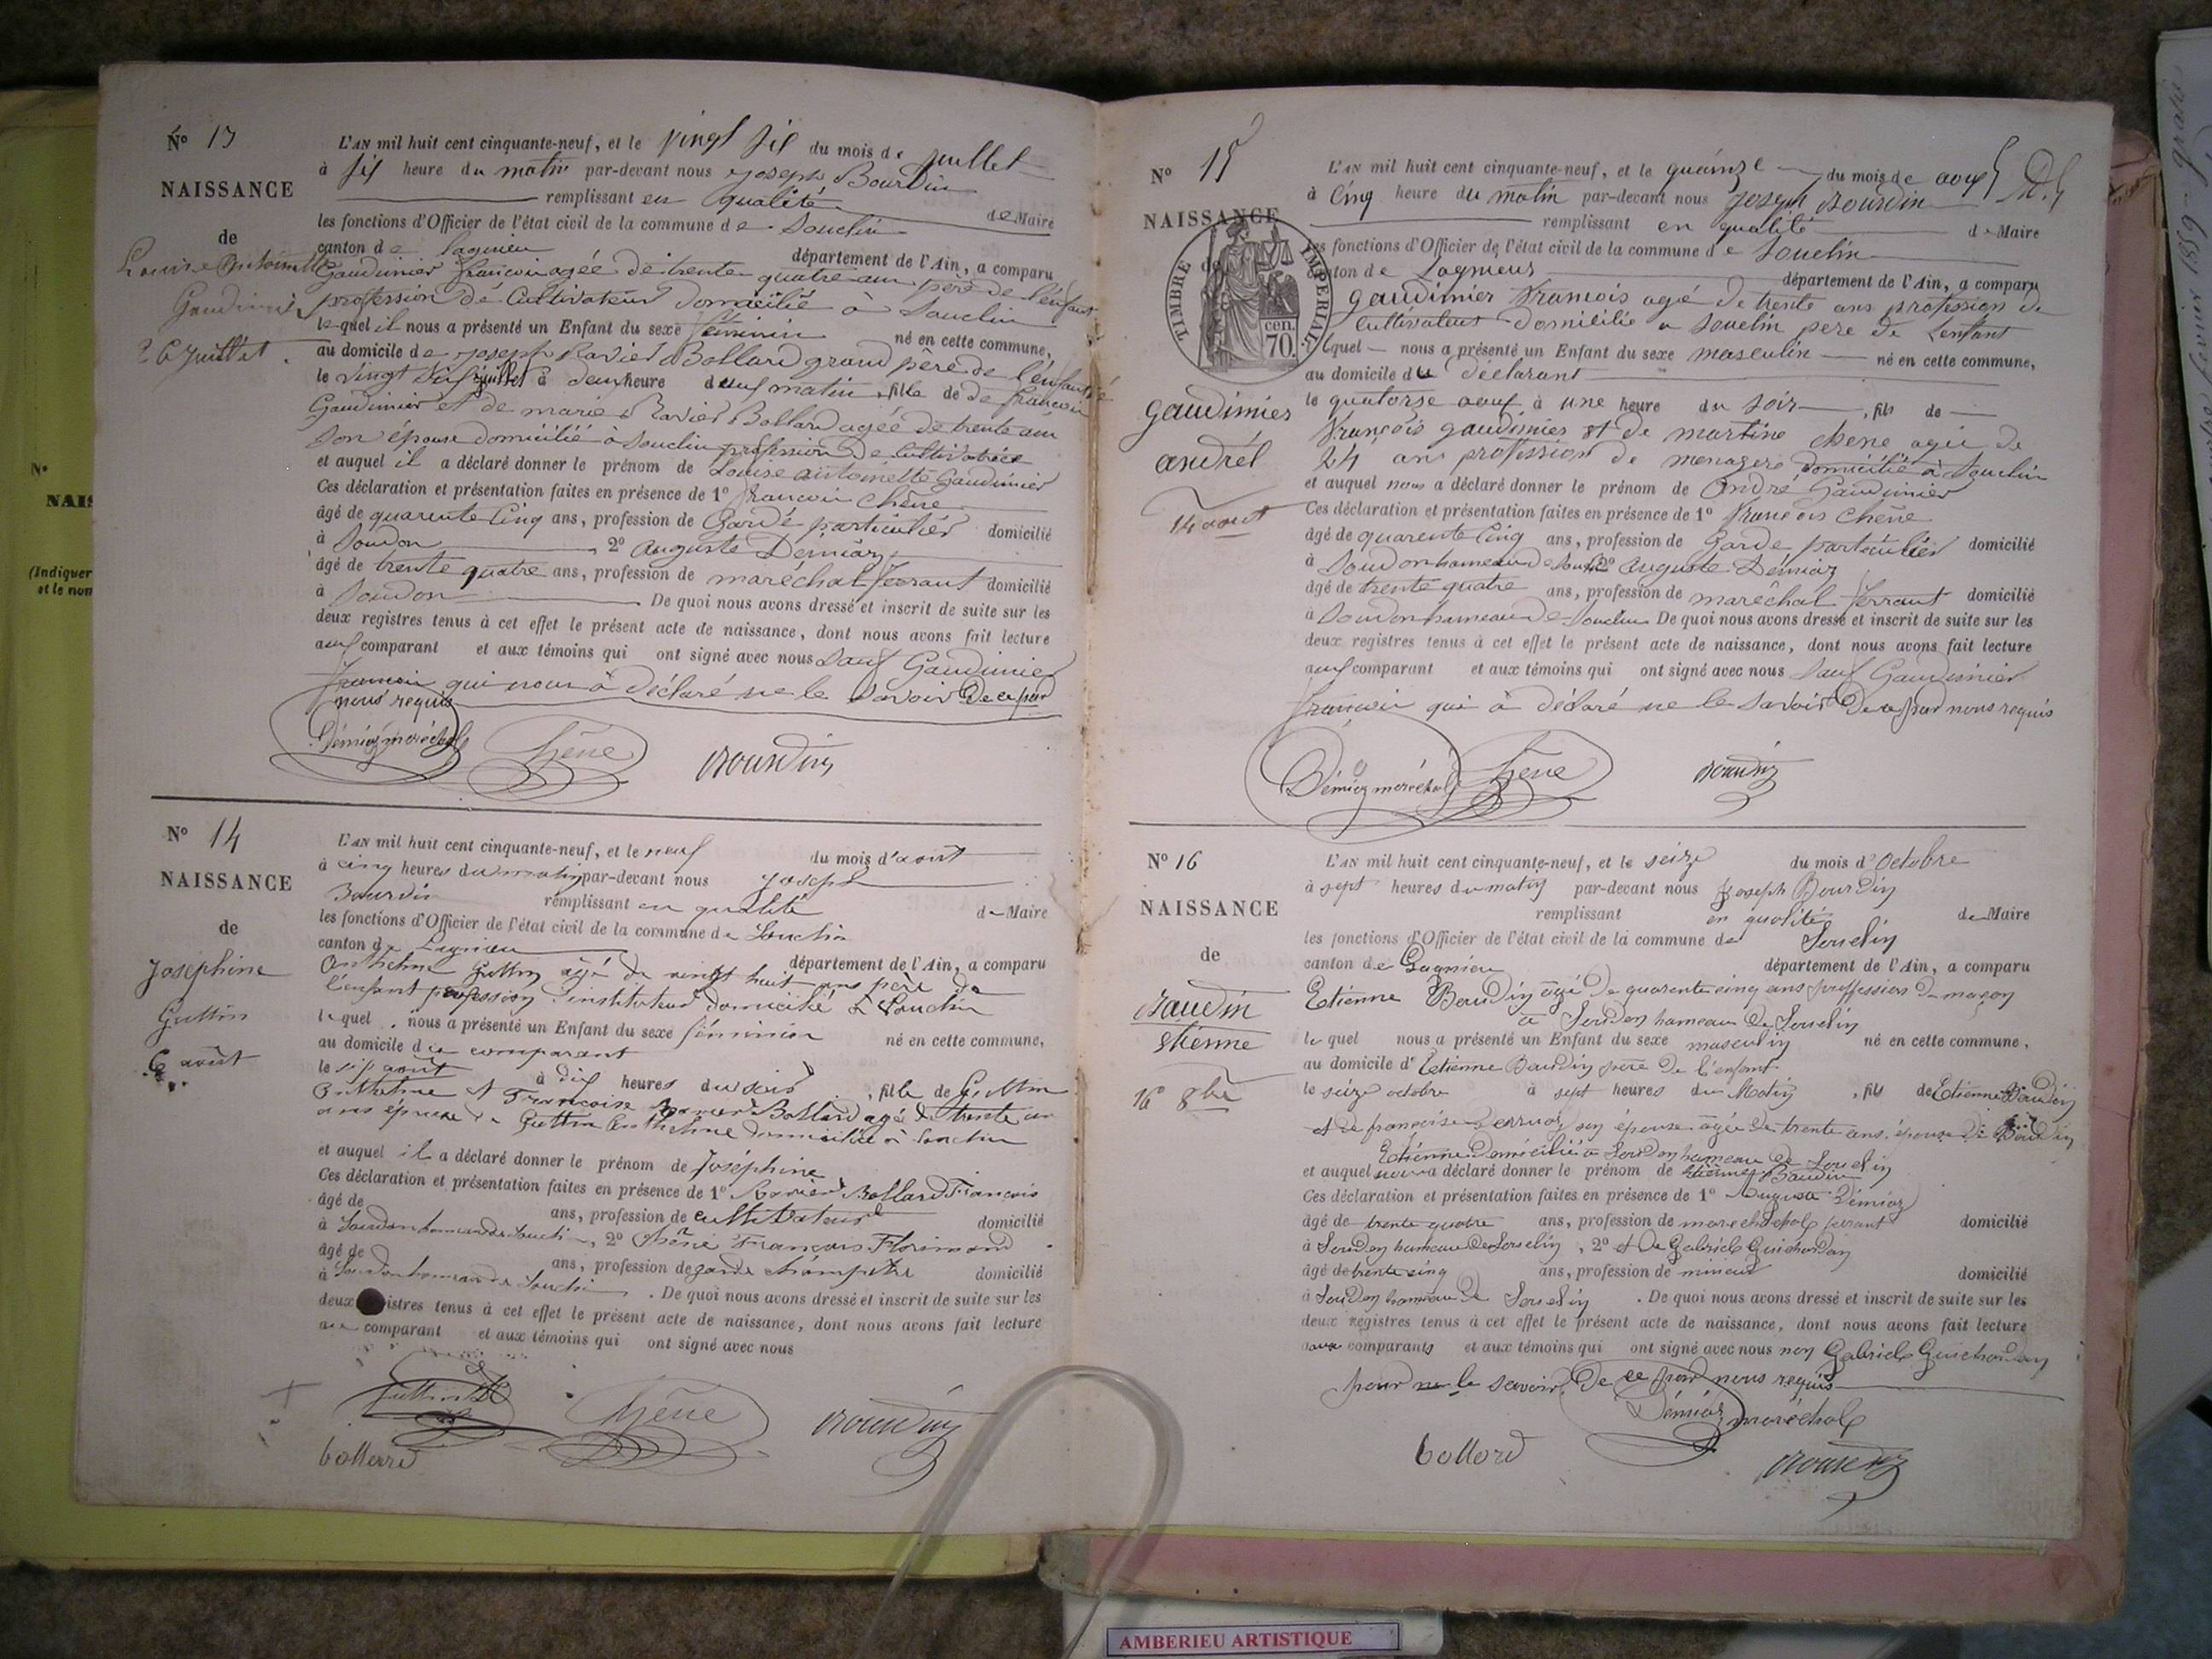 N° 13
NAISSANCE
de
Louise Antoinette
Gaudimier
26 juillet.
L'AN mil huit cent cinquante-neuf, et le vingt six du mois de juillet
à six heure du matin par-devant nous Joseph Bourdin
remplissant en qualité de Maire
les fonctions d'Officier de l'état civil de la commune de Souclin
canton de lagnieu département de l'Ain, a comparu
Gaudimier françois agée de trente quatre ans père de l'enfant
profession de Cultivateur domicilié à Souclin
lequel il nous a présenté un Enfant du sexe féminin né en cette commune,
au domicile de joseph Ravier Bollard grand père de l'enfant
le vingt six juillet à deux heure du matin, fille de de françois
Gaudimier et de marie Ravier Bollard agée de trente ans
son épouse domicilié à Souclin profession de Cultivatrice
et auquel il a déclaré donner le prénom de Louise antoinette Gaudimier
Ces déclaration et présentation faites en présence de 1° françois Chêne
âgé de quarente Cinq ans, profession de Garde particulier domicilié
à Soudon 2° auguste Démiaz
âgé de trente quatre ans, profession de maréchal ferrant domicilié
à Soudon. De quoi nous avons dressé et inscrit de suite sur les
deux registres tenus à cet effet le présent acte de naissance, dont nous avons fait lecture
aux comparant et aux témoins qui ont signé avec nous Sauf Gaudimier
françois qui nous à déclaré ne le savoir de ce par
nous requis
Démiaz maréchal Chêne Bourdin
N° 14
NAISSANCE
de
Joséphine
Guttin
6 août
L'AN mil huit cent cinquante-neuf, et le neuf du mois d'août
à cinq heures du matin par-devant nous joseph
Bourdin remplissant en qualité de Maire
les fonctions d'Officier de l'état civil de la commune de Souclin
canton de Lagnieu département de l'Ain, a comparu
Anthelme Guttin âgé de vingt huit ans père de
l'enfant profession d'instituteur domicilié à Souclin
lequel nous a présenté un Enfant du sexe féminin né en cette commune,
au domicile du comparant
le six août à dix heures du soir, fille de Guttin
Anthelme et Françoise Ravier Bollard agé de trente un
ans épouse de Guttin Anthelme domiciliée à Souclin
et auquel il a déclaré donner le prénom de Joséphine
Ces déclaration et présentation faites en présence de 1° Ravier Bollard François
âgé de ans, profession de cultivateur domicilié
à Soudon hameau de Souclin, 2° Chêne François Florimond
âgé de ans, profession de garde champetre domicilié
à Soudon hameau de Souclin. De quoi nous avons dressé et inscrit de suite sur les
deux istres tenus à cet effet le présent acte de naissance, dont nous avons fait lecture
au comparant et aux témoins qui ont signé avec nous
Guttin Chêne Bourdin
bollard
N° 15
NAISSANCE
de
TIMBRE IMPERIAL
cen.
70.
gaudimier
andrél
14 aout
L'AN mil huit cent cinquante-neuf, et le quinze du mois de
à Cinq heure du matin par-devant nous joseph Bourdin
remplissant en qualité de Maire
les fonctions d'Officier de l'état civil de la commune de Souclin
canton de Lagnieus département de l'Ain, a comparu
gaudimier François agé de trente ans profession de
Cultivateur domicilié a Souclin pere de lenfant
lequel nous a présenté un Enfant du sexe masculin né en cette commune,
au domicile du déclarant
le quatorse à une heure du soir, fils de
François gaudimier et de martine chene agée de
24 ans profession de menagere domicilié à Souclin
et auquel nous a déclaré donner le prénom de André Gaudimier
Ces déclaration et présentation faites en présence de 1° François Chêne
âgé de quarente Cinq ans, profession de Garde particulier domicilié
à Soudon hameau de 2° auguste Démiaz
âgé de trente quatre ans, profession de marechal ferrant domicilié
à Soudon hameau de Souclin De quoi nous avons dressé et inscrit de suite sur les
deux registres tenus à cet effet le présent acte de naissance, dont nous avons fait lecture
aux comparant et aux témoins qui ont signé avec nous Sauf Gaudimier
françois qui à déclaré ne le savoir De ce par nous requis
Démiaz maréchal Chêne Bourdin
N° 16
NAISSANCE
de
Baudin
Etienne
16 8bre
L'AN mil huit cent cinquante-neuf, et le seize du mois d'Octobre
à sept heures du matin par-devant nous Joseph Bourdin
remplissant en qualité de Maire
les fonctions d'Officier de l'état civil de la commune de Souclin
canton de Lagnieu département de l'Ain, a comparu
Etienne Baudin âgé de quarente cinq ans proffession de maçon
à Soudon hameau de Souclin
lequel nous a présenté un Enfant du sexe masculin né en cette commune,
au domicile d'Etienne Baudin père de l'enfant
le seize octobre à sept heures du Matin, fils de Etienne Baudin
et de françoise son épouse âgée de trente ans, épouse de Baudin
Etienne domiciliée à Soudon hameau de Souclin
et auquel nous a déclaré donner le prénom de Etienne Baudin
Ces déclaration et présentation faites en présence de 1° Auguste Démiaz
âgé de trente quatre ans, profession de ferant domicilié
à Soudon hameau de Souclin, 2° et de Gabriel Guichardan
âgé de trente cinq ans, profession de mineur domicilié
à Soudon hameau de Souclin. De quoi nous avons dressé et inscrit de suite sur les
deux registres tenus à cet effet le présent acte de naissance, dont nous avons fait lecture
aux comparants et aux témoins qui ont signé avec nous non Gabriel Guichardan
pour ne le savoir, De ce par nous requis
Démiaz maréchal
bollard Bourdin
N°
NAIS
(Indiquer
et le nom
AMBERIEU ARTISTIQUE